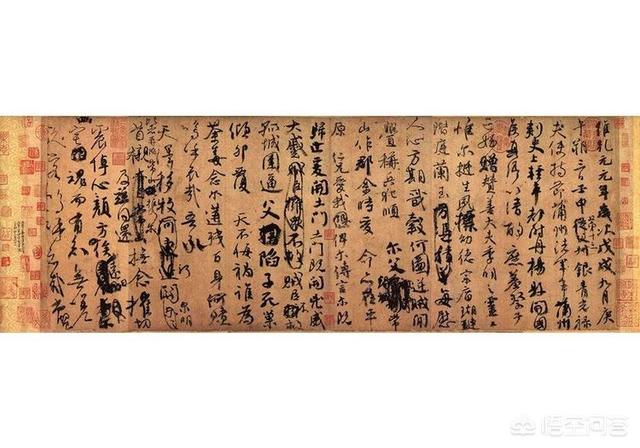 維乾元元年歲次戊戌九月庚
午朔三日壬申第十三叔銀青光祿
夫使持節蒲州諸軍事蒲州
刺史上輕車都尉丹楊縣開國
侯真卿以清酌庶羞祭于
亡姪贈贊善大夫季明之靈曰
惟爾挺生夙標幼德宗廟瑚璉
階庭蘭玉每慰
人心方期戩穀何圖逆賊間
釁稱兵犯順爾父竭誠常
山作郡余時受命亦在平
原仁兄愛我俾爾傳言爾既
歸止爰開土門土門既開兇威
大蹙賊臣不救
孤城圍逼父陷子死巢
傾卵覆天不悔禍誰為
荼毒念爾遘殘百身何贖
嗚呼哀哉吾承
天澤移牧河關泉明
首櫬及茲同還撫念摧切
震悼心顏方俟遠日
宅魂而有知無嗟
久客嗚呼哀哉尚饗
悟空问答